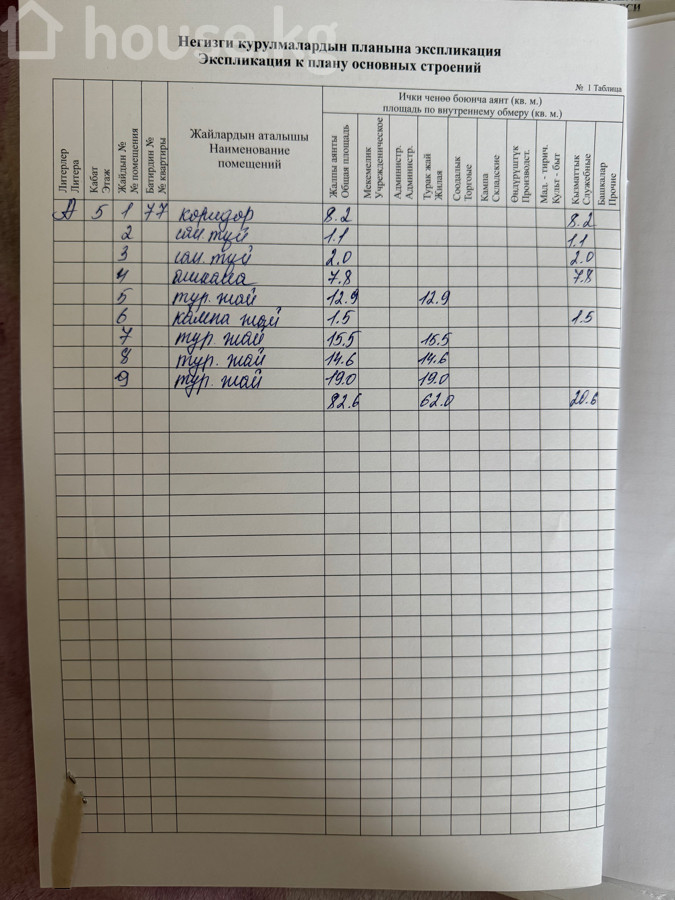 house.kg
Негизги курулмалардын планына экспликация
Экспликация к плану основных строений
№ 1 Таблица
Литерлер
Литера
Кабат
Этаж
Жайдын №
№ помещения
Батирдин №
№ квартиры
Жайлардын аталышы
Наименование
помещений
Ички ченөө боюнча аянт (кв. м.)
площадь по внутреннему обмеру (кв. м.)
Жалпы аянты
Общая площадь
Мекемелик
Учрежденческое
Администр.
Администр.
Турак жай
Жилая
Соодалык
Торговые
Кампа
Складские
Өндүрүштүк
Производст.
Мад. - тирич.
Культ - быт
Кызматтык
Служебные
Башкалар
Прочие
А 5 1 77 коридор 8.2 8.2
2 сан туй 1.1 1.1
3 сан. туй 2.0 2.0
4 ашкана 7.8 7.8
5 тур. жай 12.9 12.9
6 кампа жай 1.5 1.5
7 тур. жай 15.5 15.5
8 тур. жай 14.6 14.6
9 тур. жай 19.0 19.0
82.6 62.0 20.6